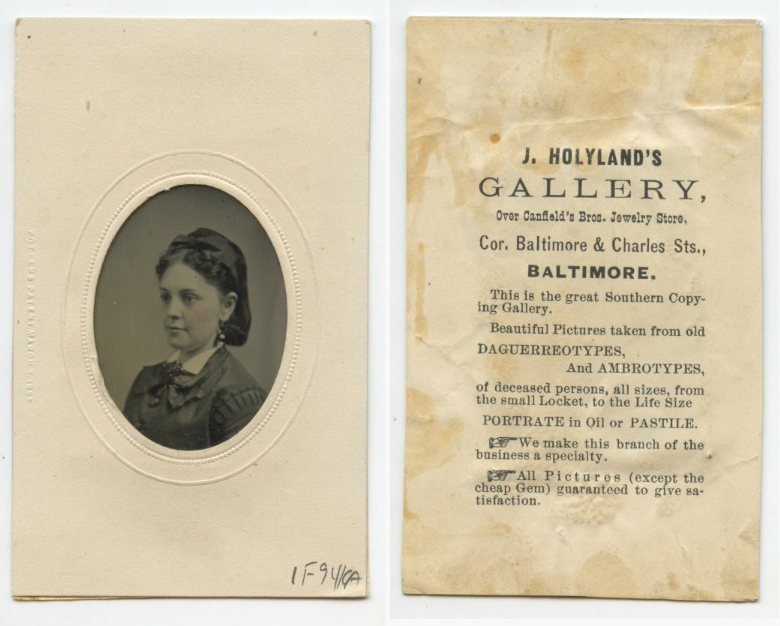 1F94/6A
J. HOLYLAND'S
GALLERY,
Over Canfield's Bros. Jewelry Store,
Cor. Baltimore & Charles Sts.,
BALTIMORE.
This is the great Southern Copy-
ing Gallery.
Beautiful Pictures taken from old
DAGUERREOTYPES,
And AMBROTYPES,
of deceased persons, all sizes, from
the small Locket, to the Life Size
PORTRATE in Oil or PASTILE.
☞ We make this branch of the
business a specialty.
☞ All Pictures (except the
cheap Gem) guaranteed to give sa-
tisfaction.